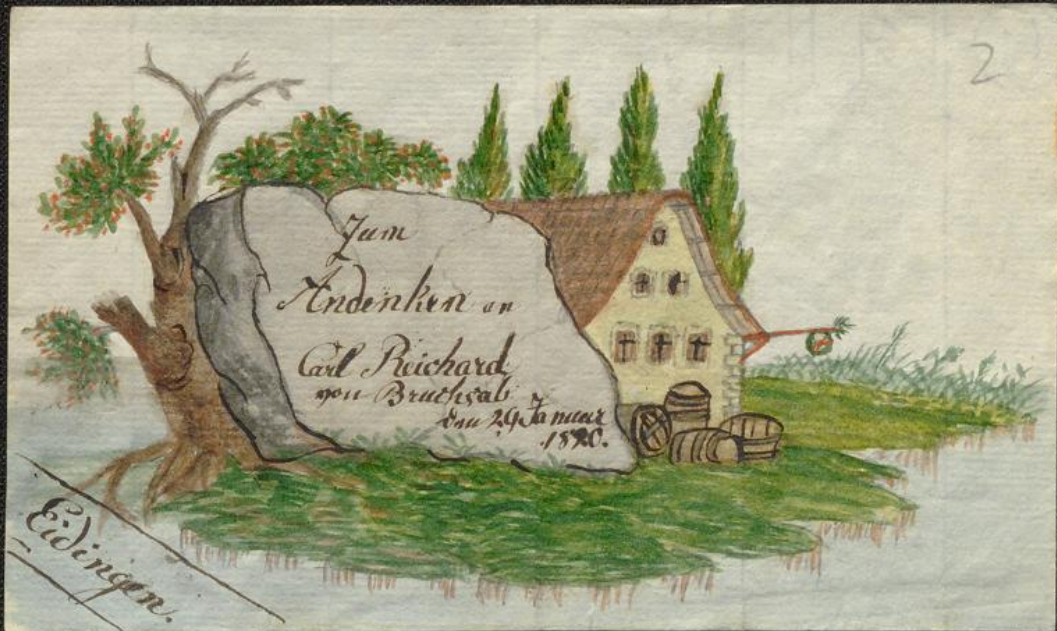 2
Zum
Andenken an
Carl Reichard
von Bruchsal
den 29 Januar
1820.
Eidingen.